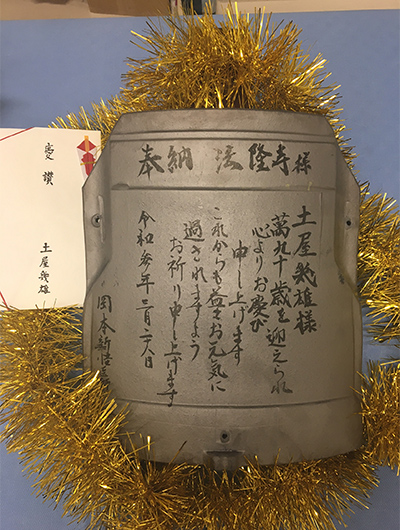 奉納 法隆寺様
土屋幾雄様
萬九十歳を迎えられ
心よりお慶び
申し上げます
これからも益々お元気に
過されますよう
お祈り申し上げます
令和参年 三月二八日
岡本新悟
慶讃
土屋幾雄